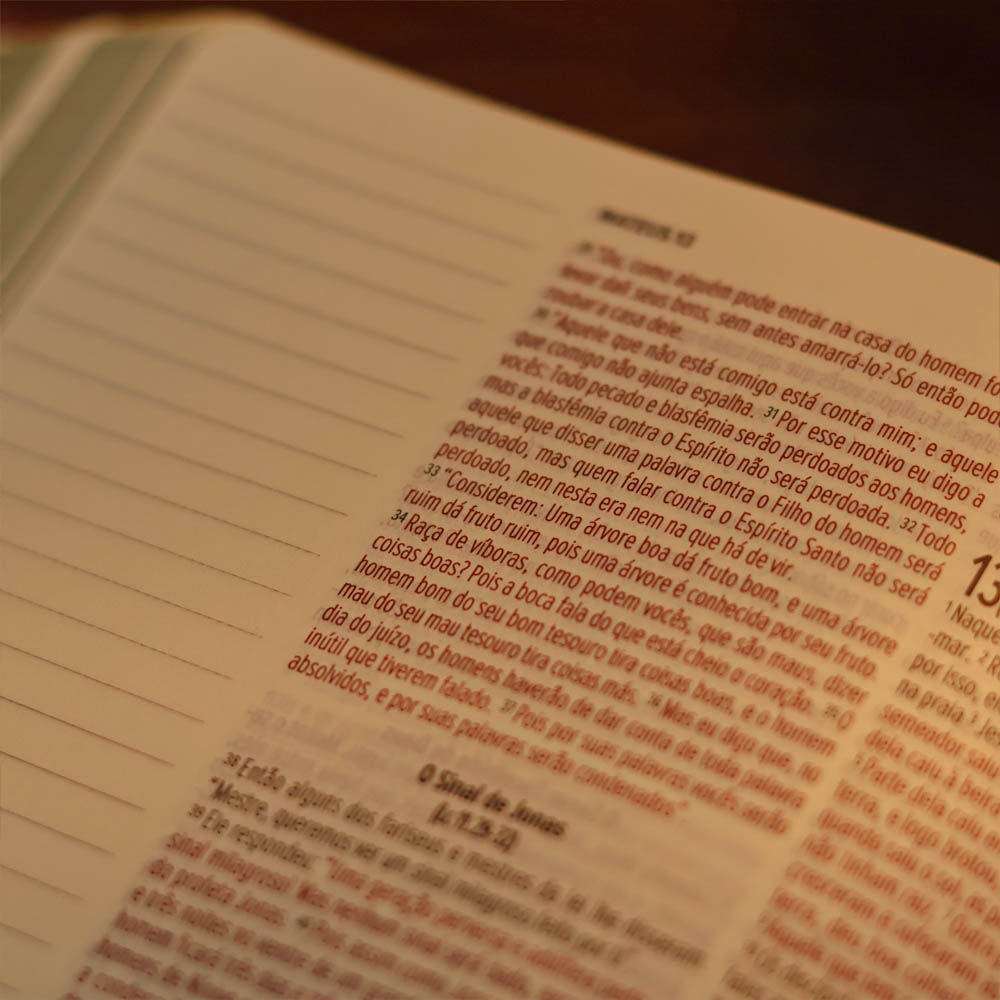 MATEUS 12
"Ou, como alguém pode entrar na casa do homem fo
levar dali seus bens, sem antes amarrá-lo? Só então pode
roubar a casa dele.
30 "Aquele que não está comigo está contra mim; e aquele
que comigo não ajunta espalha. 31 Por esse motivo eu digo a
vocês: Todo pecado e blasfêmia serão perdoados aos homens,
mas a blasfêmia contra o Espírito não será perdoada. 32 Todo
aquele que disser uma palavra contra o Filho do homem será
perdoado, mas quem falar contra o Espírito Santo não será
perdoado, nem nesta era nem na que há de vir.
33 "Considerem: Uma árvore boa dá fruto bom, e uma árvore
ruim dá fruto ruim, pois uma árvore é conhecida por seu fruto
34 Raça de víboras, como podem vocês, que são maus, dizer
coisas boas? Pois a boca fala do que está cheio o coração. 35 O
homem bom do seu bom tesouro tira coisas boas, e o homem
mau do seu mau tesouro tira coisas más. 36 Mas eu digo que, no
dia do juízo, os homens haverão de dar conta de toda palavra
inútil que tiverem falado. 37 Pois por suas palavras vocês serão
absolvidos, e por suas palavras serão condenados".
O Sinal de Jonas
38 Então alguns dos fariseus e mestres da lei lhe disseram
"Mestre, queremos ver um sinal milagroso feito por
39 Ele respondeu: "Uma geração perversa e adúltera
sinal milagroso! Mas nenhum sinal será
do profeta Jonas. 40 Pois assim como
e três noites no ventre de um
13
1 Naque
-mar. 2
por isso, e
na praia. 3 Je
semeador saiu
dela caiu à beira
5 Parte dela caiu
terra, e logo brotou,
Quando saiu o sol, as
não tinham raiz. 7